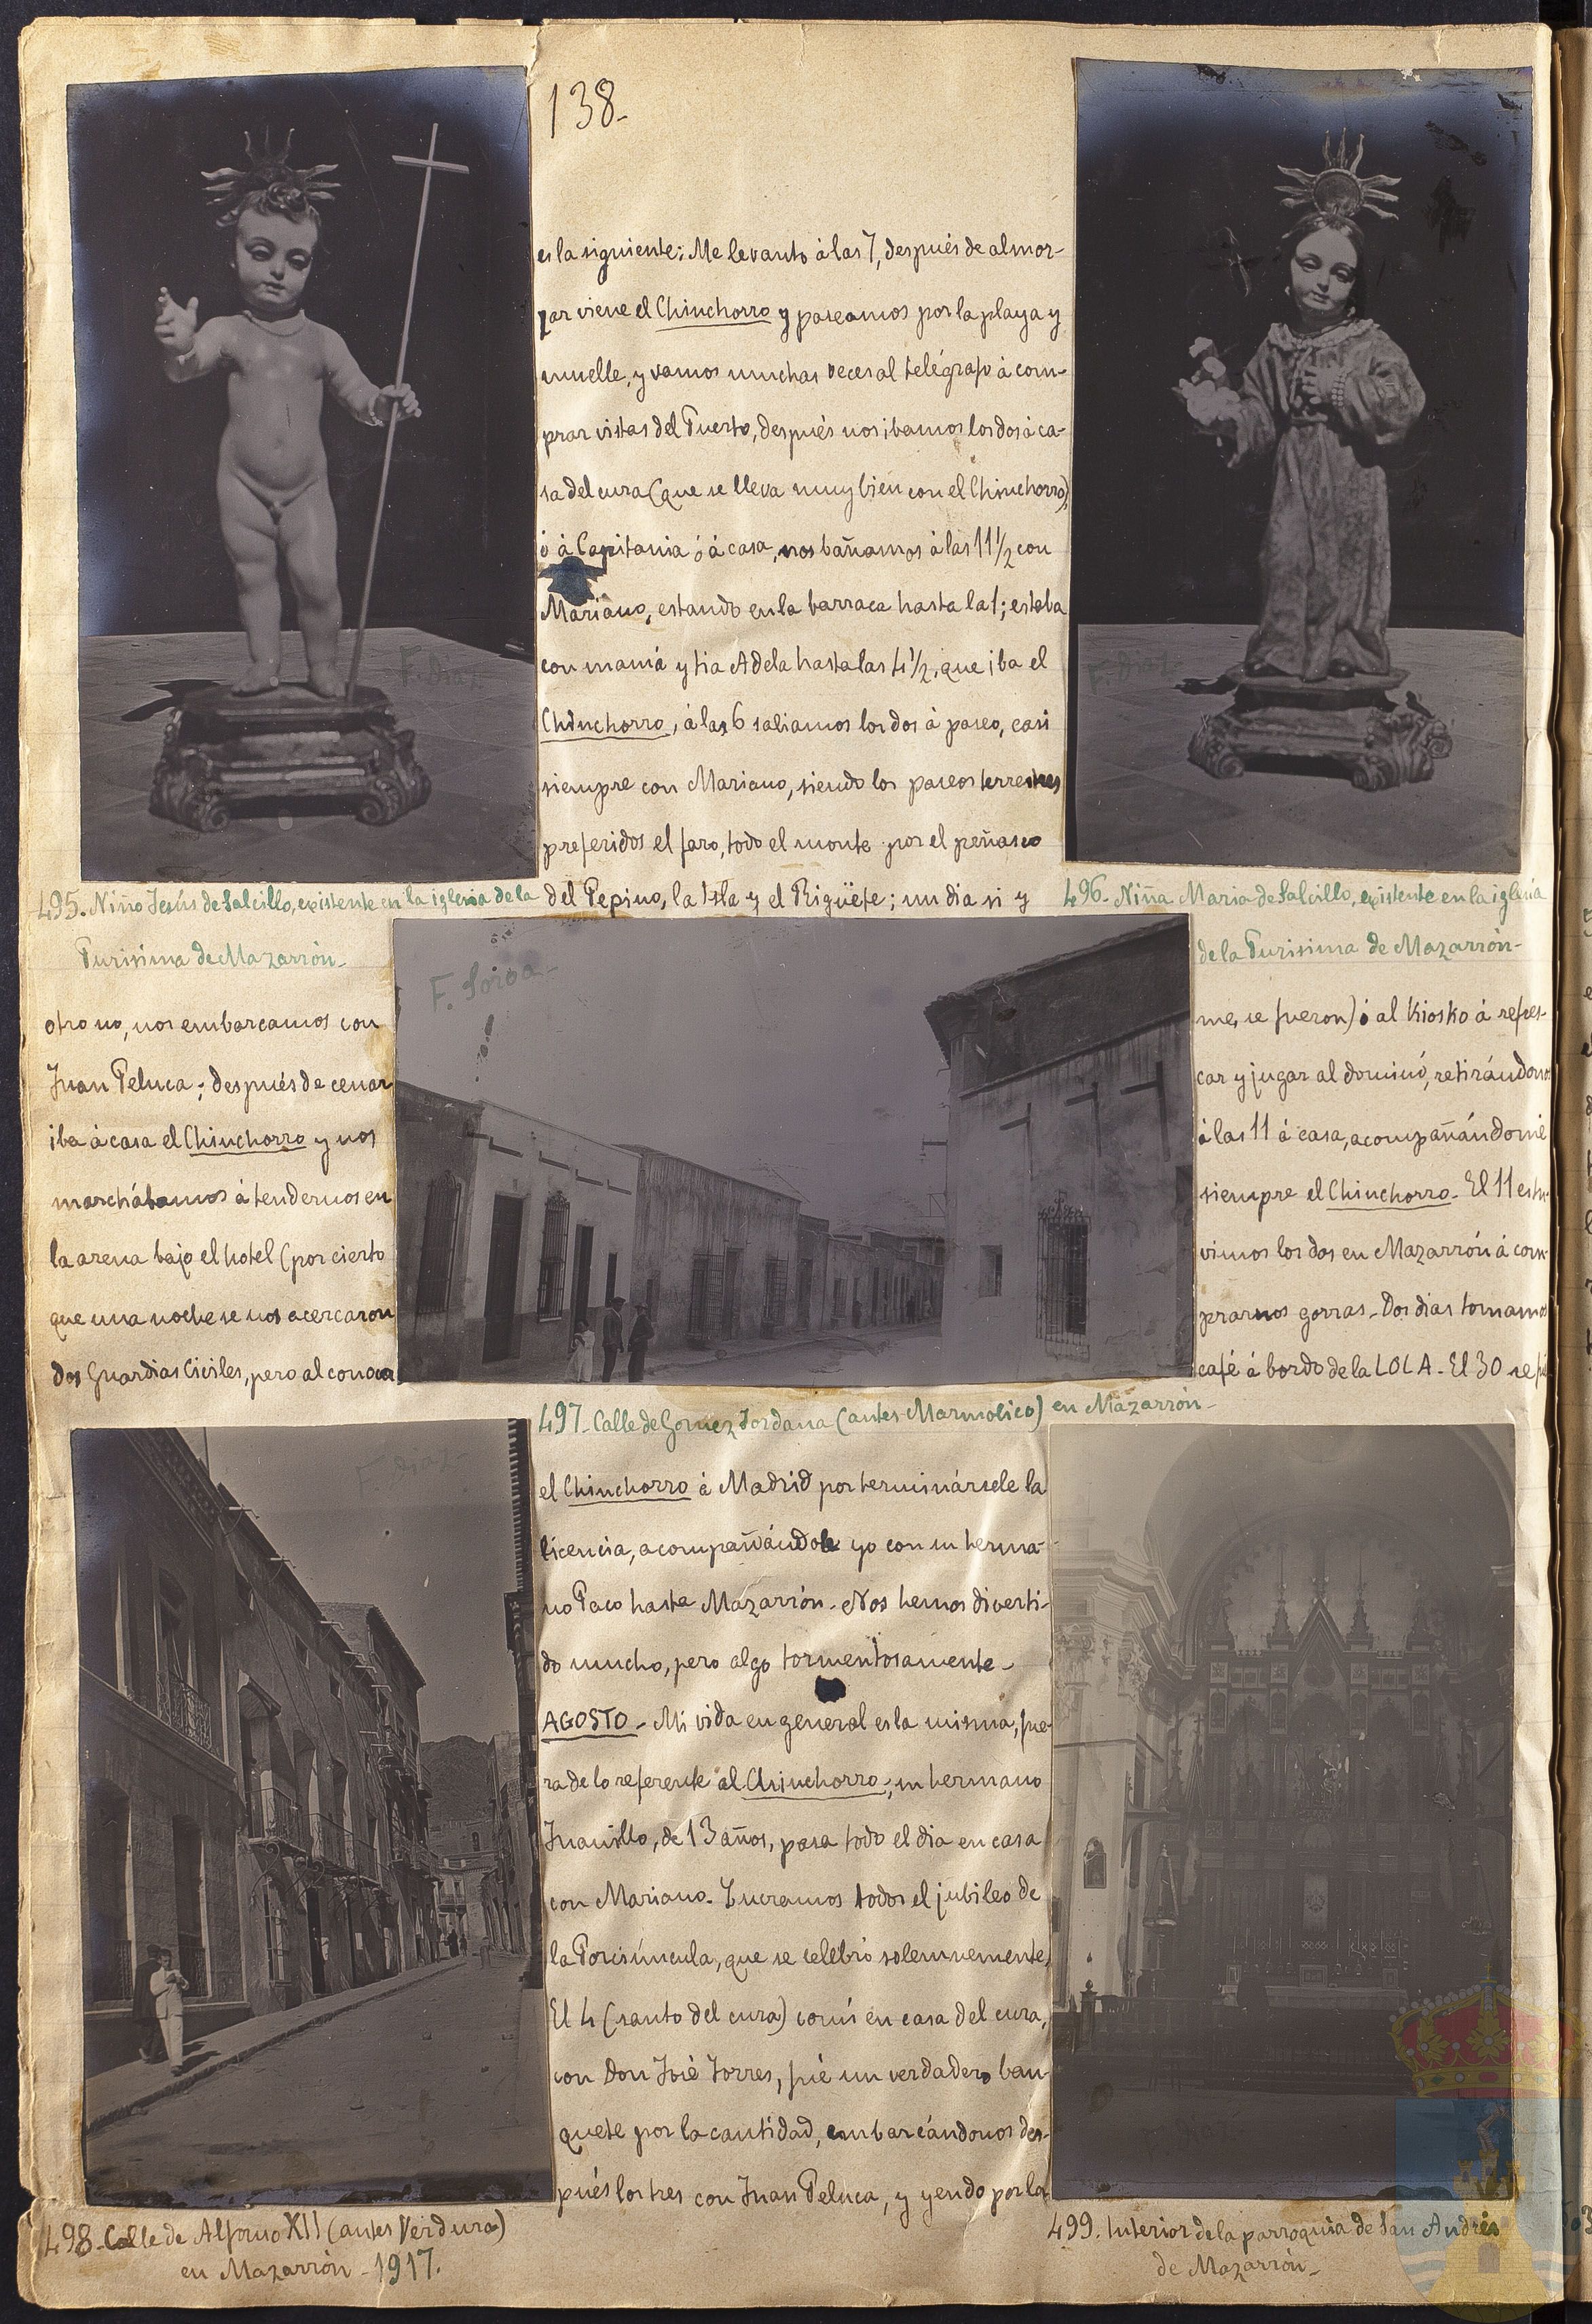 138-
es la siguiente: Me levanto á las 7, después de almor-
zar viene el Chinchorro y paseamos por la playa y
muelle, y vamos muchas veces al telégrafo á com-
prar vistas del Puerto, después nos ibamos los dos á ca-
sa del cura (que se lleva muy bien con el Chinchorro),
ó á Capitania ó á casa, nos bañamos á las 11 1/2 con
Mariano, estando en la barraca hasta la 1; estaba
con mamá y tia Adela hasta las 4 1/2, que iba el
Chinchorro, á las 6 saliamos los dos á paseo, casi
siempre con Mariano, siendo los paseos terrestres
preferidos el faro, todo el monte por el peñasco
del Pepino, la Isla y el Rigüete; un dia si y
F. Diaz
F. Diaz
495. Niño Jesús de Salcillo, existente en la iglesia de la
Purisima de Mazarrón-
496. Niña Maria de Salcillo, existente en la iglesia
de la Purisima de Mazarrón-
otro no, nos embarcamos con
Juan Peluca; después de cenar
iba á casa el Chinchorro y nos
marchábamos á tendernos en
la arena bajo el hotel (por cierto
que una noche se nos acercaron
dos Guardias Civiles, pero al conocer
F. Soroa-
me, se fueron) ó al Kiosko á refres-
car y jugar al dominó, retirándonos
á las 11 á casa, acompañándome
siempre el Chinchorro- El 11 estu-
vimos los dos en Mazarrón á com-
prarnos gorras- Dos dias tomamos
café á bordo de la LOLA- El 30 se fué
497- Calle de Gomez Jordana (antes Marmolico) en Mazarrón-
F. Diaz-
el Chinchorro á Madrid por terminársele la
licencia, acompañándole yo con su herma-
no Paco hasta Mazarrón- Nos hemos diverti-
do mucho, pero algo tormentosamente-
AGOSTO- Mi vida en general es la misma, fue-
ra de lo referente al Chinchorro; su hermano
Juanillo, de 13 años, pasa todo el dia en casa
con Mariano- Lucramos todos el jubileo de
la Porciúncula, que se celebró solemnemente,
El 4 (santo del cura) comí en casa del cura,
con Don José Torres, fué un verdadero ban-
quete por la cantidad, embarcándonos des-
pués los tres con Juan Peluca, y yendo por la
498- Calle de Alfonso XII (antes Verdura)
en Mazarrón- 1917.
499. Interior de la parroquia de San Andrés
de Mazarrón-